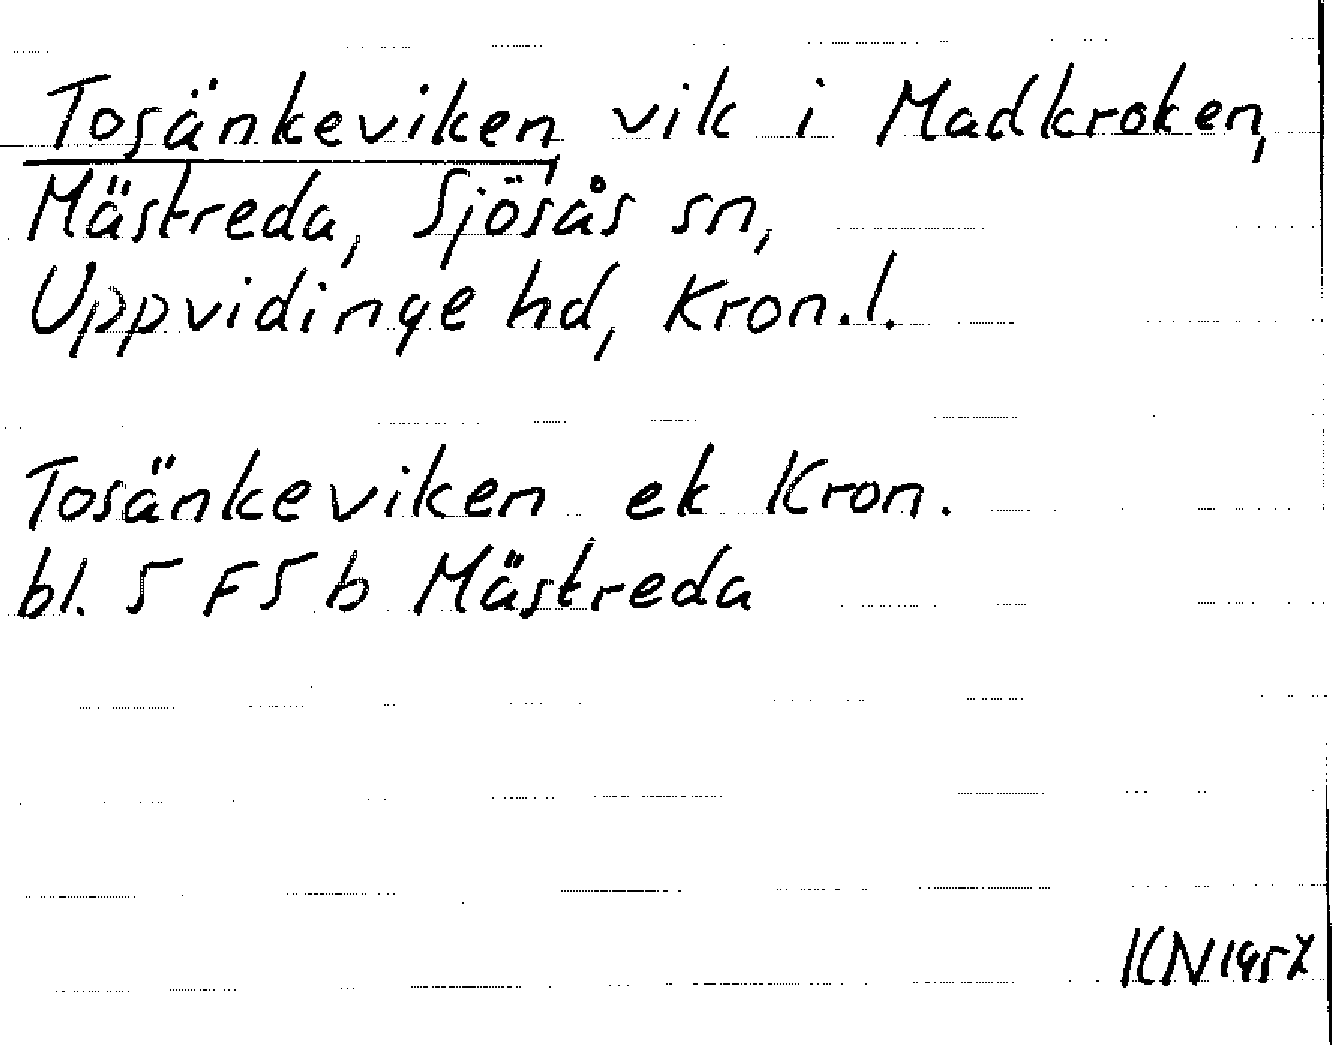 Tosänkeviken, vik i Madkroken,
Mästreda, Sjösås sn,
Uppvidinge hd, Kron.l.
Tosänkeviken ek Kron.
bl. 5 F 5 b Mästreda
KN 1957